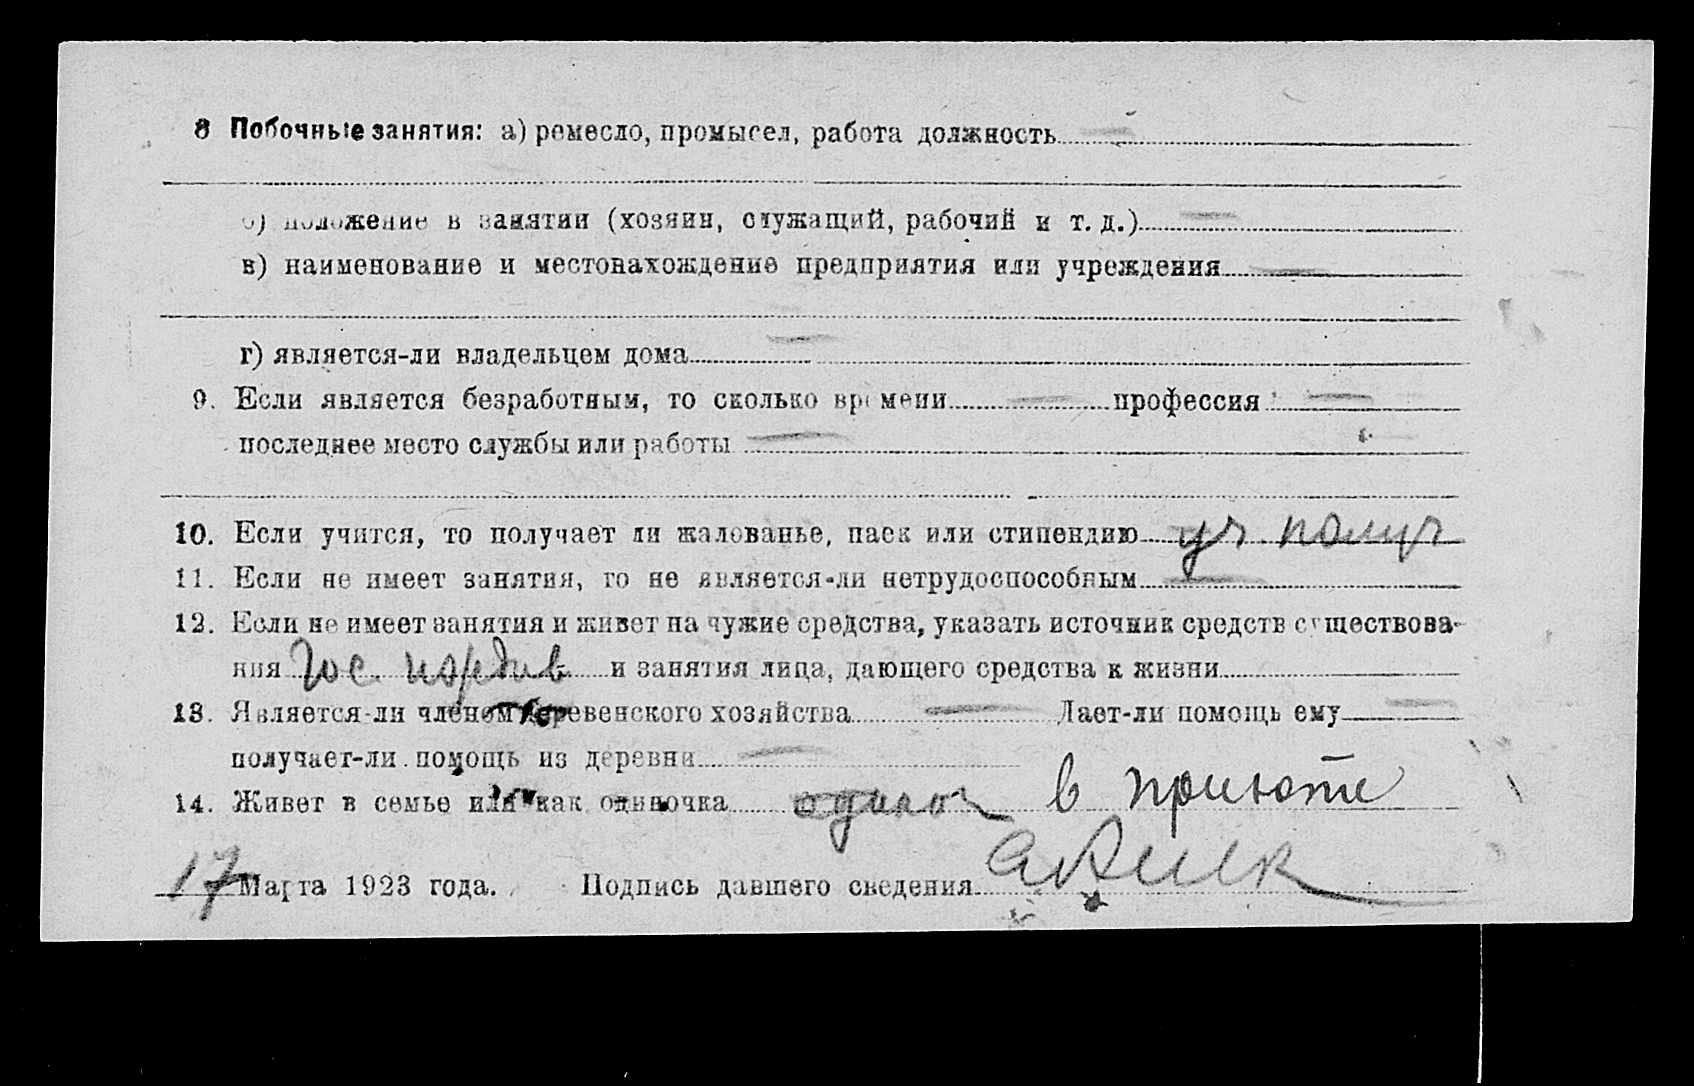 8 Побочные занятия: а) ремесло, промысел, работа должность —
б) положение в занятии (хозяин, служащий, рабочий и т. д.) —
в) наименование и местонахождение предприятия или учреждения —
г) является-ли владельцем дома —
9. Если является безработным, то сколько времени — профессия —
последнее место службы или работы —
10. Если учится, то получает ли жалованье, паек или стипендию уч. получ
11. Если не имеет занятия, то не является-ли нетрудоспособным —
12. Если не имеет занятия и живет на чужие средства, указать источник средств существова-
ния Гос. иждив и занятия лица, дающего средства к жизни
13. Является-ли членом деревенского хозяйства — Дает-ли помощь ему —
получает-ли помощь из деревни —
14. Живет в семье или как одиночка одиноч в приюте
17 Марта 1923 года. Подпись давшего сведения